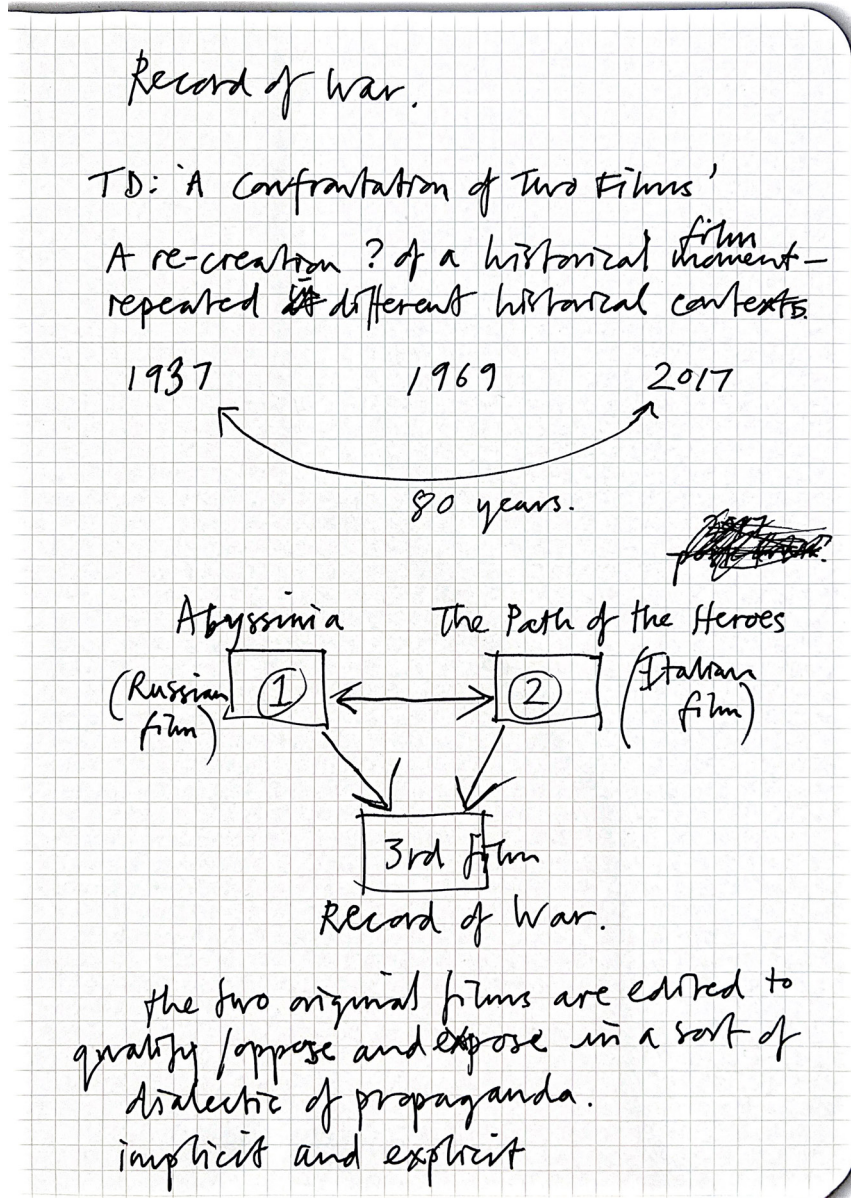 Record of War.
TD: 'A Confrontation of Two Films'
film
A re-creation ? of a historical moment –
repeated in different historical contexts.
1937 1969 2017
80 years.
Abyssinia The Path of the Heroes
(Russian film) 1 2 (Italian film)
3rd film
Record of War.
the two original films are edited to
qualify / oppose and expose in a sort of
dialectic of propaganda.
implicit and explicit